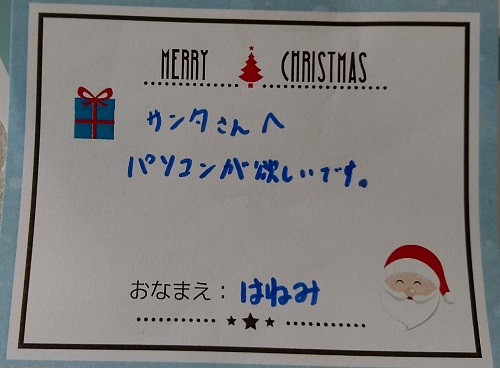 MERRY CHRISTMAS
サンタさんへ
パソコンが欲しいです。
おなまえ：はねみ